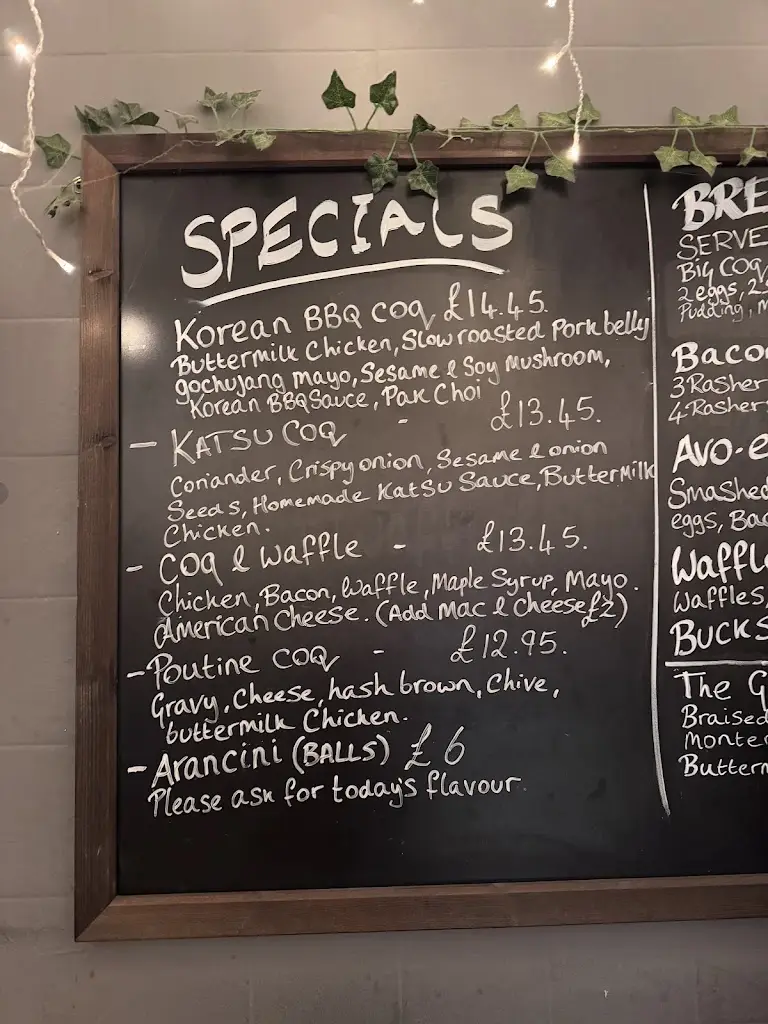 SPECIALS
Korean BBQ COQ £14.45.
Buttermilk Chicken, Slow roasted Pork belly
gochujang mayo, Sesame & Soy Mushroom,
Korean BBQ Sauce, Pak Choi
- KATSU COQ - £13.45.
Coriander, Crispy onion, Sesame & onion
Seeds, Homemade KatSu Sauce, ButterMilk
Chicken.
- COQ & Waffle - £13.45.
Chicken, Bacon, Waffle, Maple Syrup, Mayo.
American Cheese. (Add Mac & Cheese £2)
- Poutine COQ - £12.95.
Gravy, Cheese, hash brown, Chive,
buttermilk Chicken.
- Arancini (BALLS) £6
Please ask for today's flavour.
BRE
SERVE
BIG COQ
2 eggs, 2
Pudding, M
Baco
3 Rasher
4 Rashers
Avo-e
Smashed
eggs, Bac
Waffl
Waffles,
BUCKS
The G
Braised
Monte
Buttern